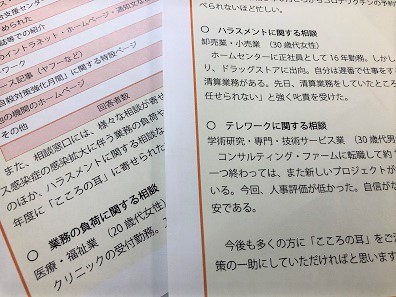 支援センター
められた
イントラネット・ホームページ・通知文な
誌等での紹介
ワーク
ース記事（ヤフーなど）
自殺対策強化月間」に関する特設ページ
他の機関のホームページ
その他
回答者数
また、相談窓口には、様々な相談が寄せ
ス感染症の感染拡大に伴う業務の負荷や
のほか、ハラスメントに関する相談な
年度に「こころの耳」に寄せられた
○ 業務の負荷に関する相談
医療・福祉業 （20歳代女性）
クリニックの受付勤務。
べられないほど忙しい。
○ ハラスメントに関する相談
卸売業・小売業 （30歳代女性）
ホームセンターに正社員として16年勤務。しか
り、ドラッグストアに出向。自分は遅番で仕事をす
清算業務がある。先日、清算業務をしていたところ
任せられない」と強く叱責を受けた。
○ テレワークに関する相談
学術研究・専門・技術サービス業 （30歳代男
コンサルティング・ファームに転職して約1
一つ終わっては、また新しいプロジェクトが
いる。今回、人事評価が低かった。自信がな
安である。
今後も多くの方に「こころの耳」をご
策の一助にしていただければと思います